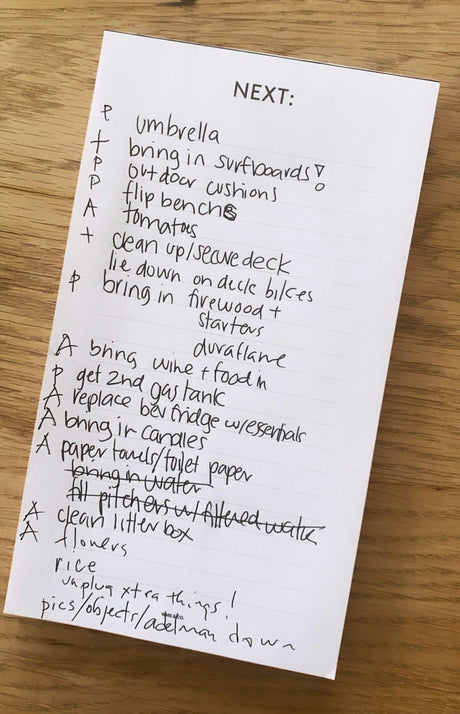 NEXT:
P umbrella
+ bring in surfboards!
P outdoor cushions
P flip benches
A tomatoes
+ clean up/secure deck
lie down on deck bikes
P bring in firewood +
starters
duraflame
A bring wine + food in
P get 2nd gas tank
A replace bev fridge w/essentials
A bring in candles
A paper towels/toilet paper
bring in water
fill pitchers w/filtered water
A clean litter box
A flowers
rice
unplug xtra things!
pics/objects/ down